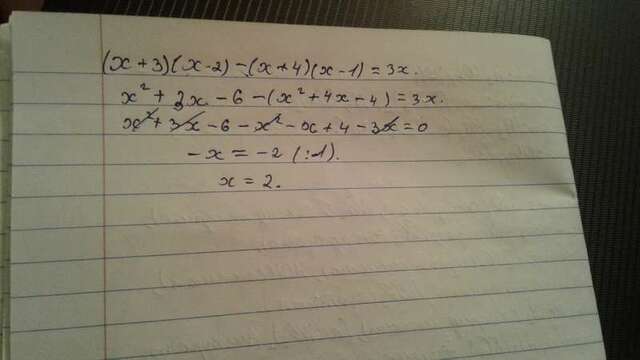 (x+3)(x-2)-(x+4)(x-1)=3x.
x²+3x-6-(x²+4x-4)=3x.
x²+3x-6-x²-x+4-3x=0
-x=-2 (:-1).
x=2.